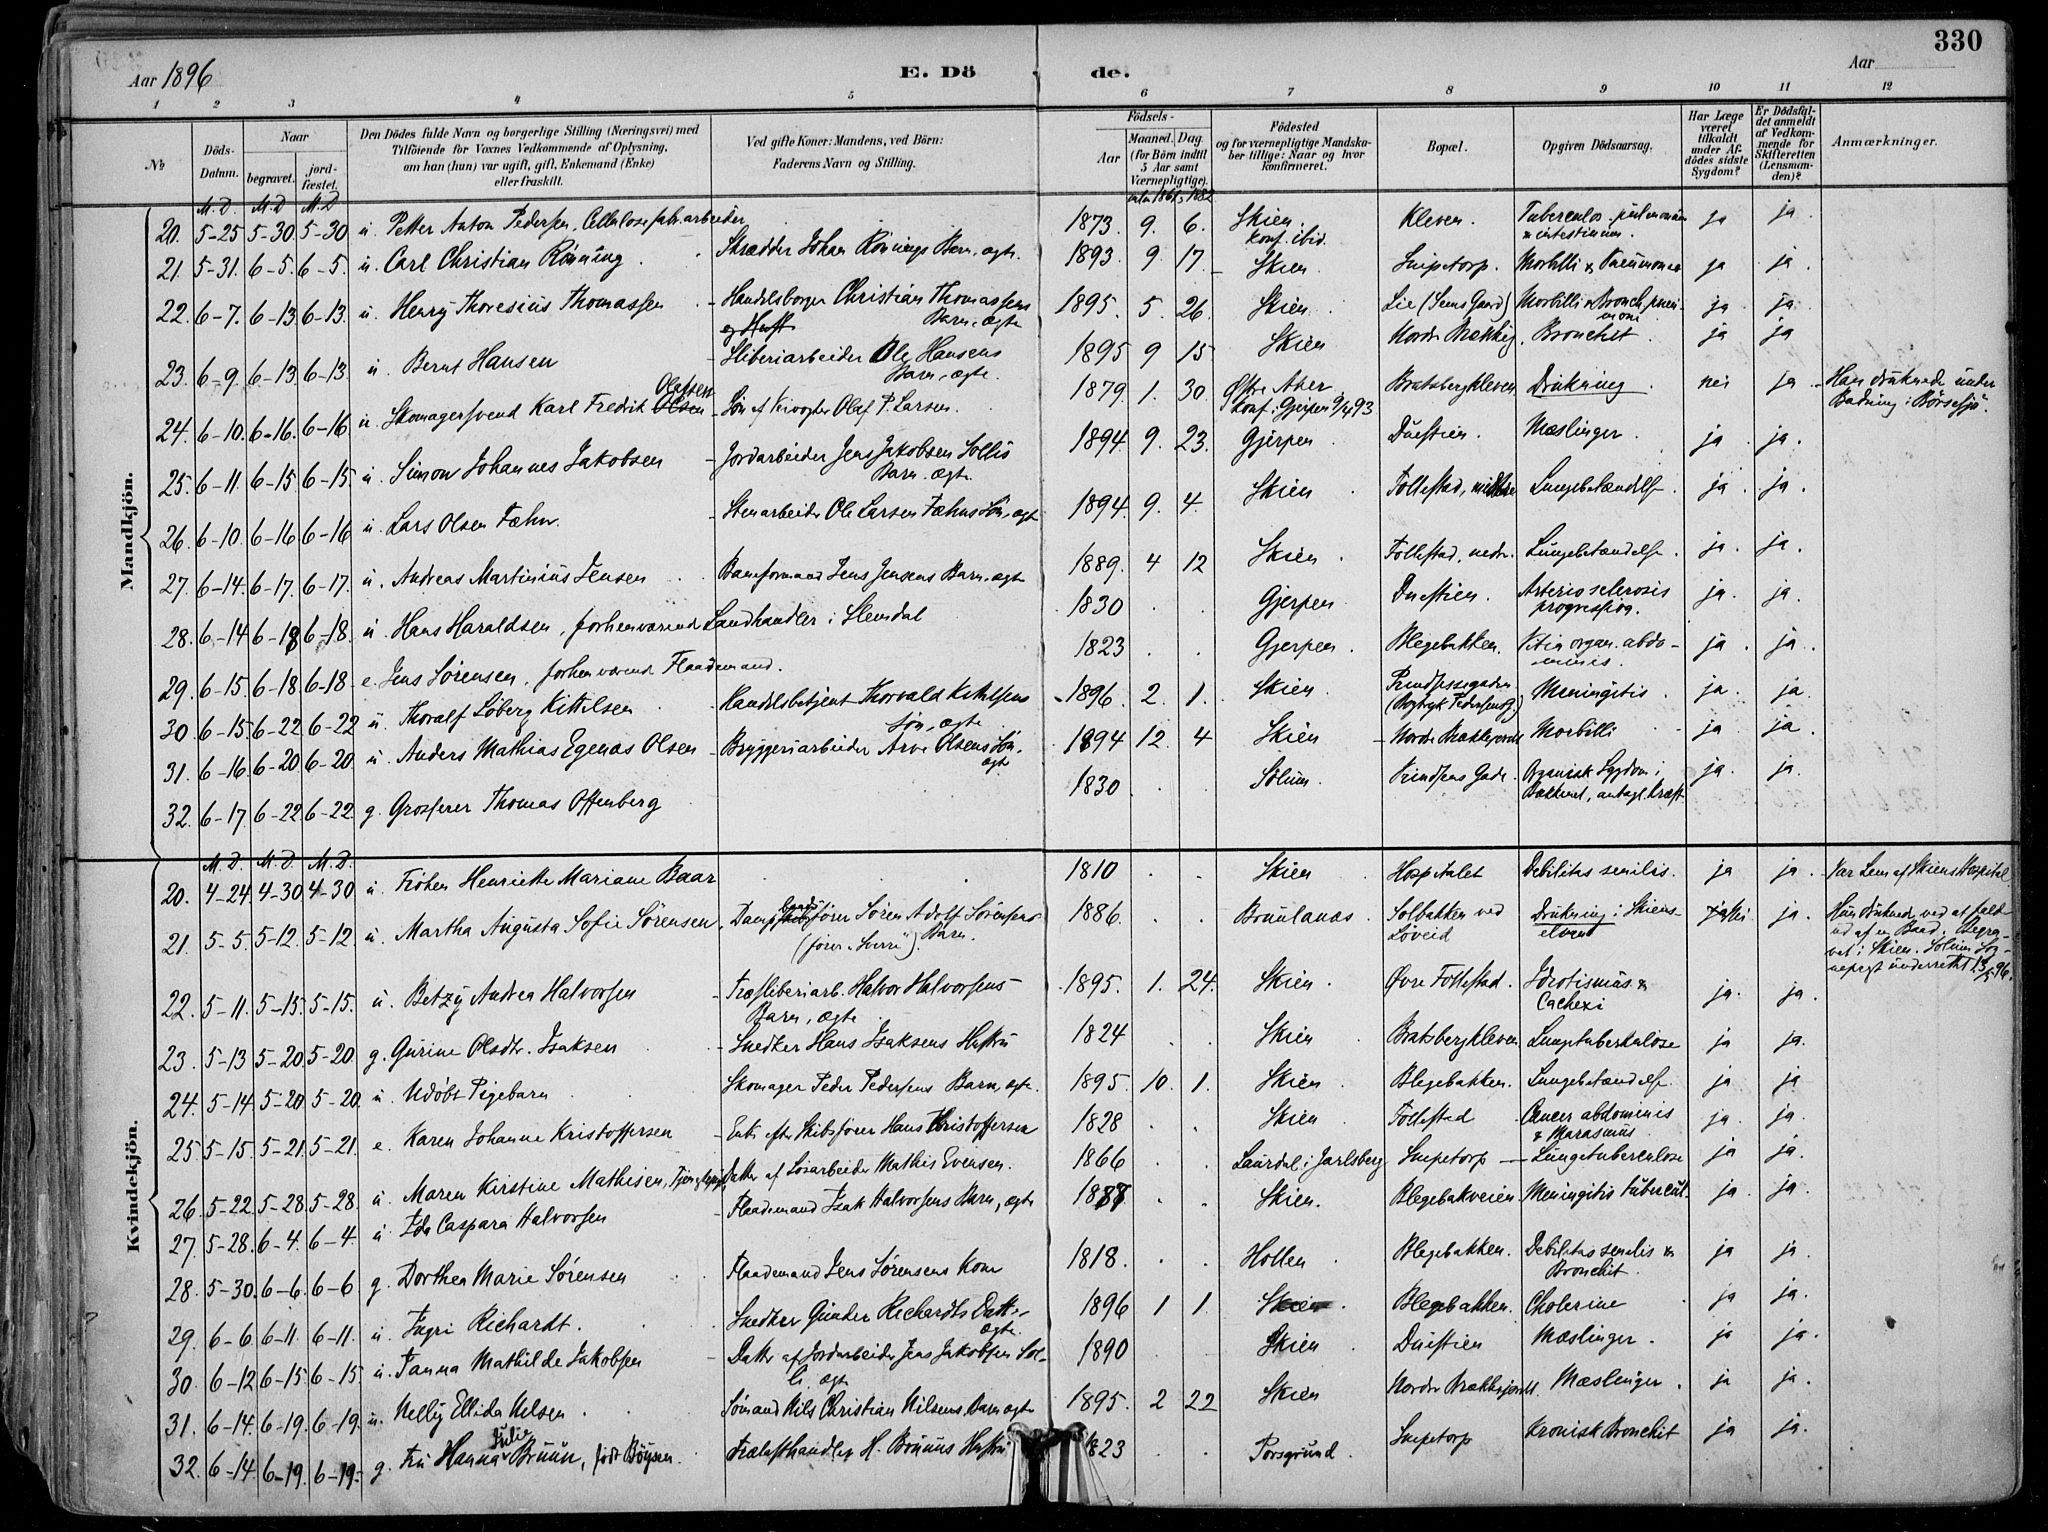 330
Aar 1896
E. Dö de.
Aar
1 2 3 4 5 6 7 8 9 10 11 12
№ Döds-Datum. Naar begravet. jord-fæstet. Den Dödes fulde Navn og borgerlige Stilling (Næringsvei) med Tilföiende for Voxnes Vedkommende af Oplysning, om han (hun) var ugift, gift, Enkemand (Enke) eller fraskilt. Ved gifte Koner: Mandens, ved Börn: Faderens Navn og Stilling. Födsels- Aar Maaned. Dag. (for Börn indtil 5 Aar samt Værnepligtige). Födested og for værnepligtige Mandskaber tillige: Naar og hvor konfirmeret. Bopæl. Opgiven Dödsaarsag. Har Læge været tilkaldt under Afdödes sidste Sygdom? Er Dödsfaldet anmeldt af Vedkommende for Skifteretten (Lensmanden)? Anmærkninger.
M. D. M. D. M. D
Mandkjön.
20. 5-25 5-30 5-30 u. Petter Anton Pedersen, Cellulosefabr.arbeider 1873 9. 6. Skien konf. ibid. Kleven. Tuberculos. pulmonum & intestinum. ja ja.
21. 5-31. 6-5. 6-5. u. Carl Christian Rönning. Skrædder Johan Rönnings Barn, ægte. 1893 9 17 Skien. Snipetorp. Morbilli & Pneumonia ja ja.
22. 6-7. 6-13. 6-13. u. Henry Thoresius Thomassen - Handelsborger Christian Thomassens Barn, ægte 1895. 5. 26. Skien Lie (Sems Gaard) Morbilli & Bronch.pneumoni ja ja.
23. 6-9. 6-13. 6-13. u. Bernt Hansen - Sliberiarbeider Ole Hansens Barn, ægte. 1895 9 15 Skien Nordre Brekke. Bronchit. ja ja
24. 6-10. 6-16. 6-16 u. Skomagersvend Karl Fredrik Olsen Olafsen - Sön af Veivogter Olaf P. Larsen. 1879. 1. 30. Østre Aker konf. i Gjerpen 9/4 93 Bratsbergkleven Drukning. nei ja - Han druknede under Badning i Börsesjö.
25. 6-11. 6-15. 6-15. u. Simon Johannes Jakobsen - Jordarbeider Jens Jakobsen Sollis Barn. ægte. 1894. 9. 23. Gjerpen. Duestien. Mæslinger. ja ja.
26. 6-10. 6-16 6-16 u. Lars Olsen Fæhn. - Stenarbeider Ole Larsen Fæhns Sön, ægte 1894. 9. 4. Skien Follestad, midtre Lungebetændelse. ja ja.
27. 6-14. 6-17. 6-17. u. Andreas Martinius Jensen Baneformand Jens Jensens Barn. ægte 1889. 4 12 Skien Follestad, nedre. Lungebetændelse. ja. ja.
28. 6-14 6-18 6-18. u. Hans Haraldsen, forhenværende Landhandler i Slemdal 1830 Gjerpen. Duestien. Arterio sclerosis progressiva. ja. ja.
29. 6-15. 6-18 6-18 e. Jens Sørensen, forhenværende Flaademand. 1823 Gjerpen. Blegebakken. Vitia organ. abdominis. ja. ja.
30 6-15. 6-22 6-22 u. Thoralf Löberg Kittelsen Handelsbetjent Thorvald Kittelsens Sön, ægte 1896. 2. 1. Skien. Prindsessegaden (Bogtryk. Pedersens G.) Meningitis. ja. ja.
31. 6-16. 6-20 6-20 u. Anders Mathias Egenæs Olsen - Bryggeriarbeider Arve Olsens Sön. ægte 1894 12. 4 Skien - Nordre Brekkejordet Morbilli - ja ja.
32. 6-17 6-22 6-22 g. Grosserer Thomas Offenberg 1830 Solum. Prindsens Gade. Organisk Sygdom i Bækkenet, antagel. Kræft ja. ja.
M. D. M. D. M. D.
Kvindekjön.
20. 4-24. 4-30 4-30 u. Fröken Henriette Mariane Baar 1810 Skien Hospitalet Debilitas senilis. ja ja. - Var Lem af Skiens Hospital
21. 5-5. 5-12. 5-12. u. Martha Augusta Sofie Sörensen, Dampbaadsförer Sören Adolf Sörensens Barn. (förer "Sverre") 1886. Brunlanæs Solbakken ved Löveid Drukning i Skienselven ja nei ja. Hun druknede ved at falde ud af en Baad. Begravet i Skien. Solum Sognepræst underrettet 13/5 96.
22. 5-11. 5-15. 5-15. u. Betzy Andrea Halvorsen - Træsliberiarb. Halvor Halvorsens Barn, ægte 1895. 1. 24. Skien Øvre Follestad. Idiotismus & Cachexi ja. ja.
23. 5-13 5-20. 5-20. g. Gurine Olsdtr. Isaksen - Snedker Hans Isaksens Hustru 1824 Skien Bratsbergkleven Lungetuberkulose ja ja.
24. 5-14. 5-20 5-20. u. Udöbt Pigebarn Skomager Peder Pedersens Barn, ægte. 1895. 10. 1. Skien Blegebakken. Lungebetændelse. ja ja
25. 5-15. 5-21. 5-21. e. Karen Johanne Kristoffersen - Enke efter Skibsförer Hans Kristoffersen 1828 Skien Follestad Cancer abdominis & Marasmus ja ja.
26. 5-22. 5-28. 5-28. u. Maren Kirstine Mathisen, Tjenestepige Datter af Löiarbeider Mathis Evensen. 1866 Laurdal i Jarlsberg Snipetorp - Lungetuberculose ja ja.
27. 5-28. 6-4. 6-4. u. Ida Caspara Halvorsen - Flaademand Isak Halvorsens Barn, ægte 1887 Skien. Blegebakveien Meningitis tubercul. ja ja.
28. 5-30. 6-6. 6-6 g. Dorthea Marie Sörensen Flaademand Jens Sörensens Kone 1818. Hollen Blegebakken. Debilitas senilis & Bronchit. ja ja.
29. 6-6 6-11. 6-11. u. Ingri Richardt. Snedker Gunder Richardts Datter. ægte. 1896 1 1. Skien. Blegebakken. Cholerine ja ja.
30. 6-12 6-15. 6-15. u. Fanna Mathilde Jakobsen - Datter af Jordarbeider Jens Jakobsen Solli ægte 1890 Skien Duestien Mæslinger. ja ja.
31. 6-14. 6-19. 6-19. u. Nelly Ellida Nelsen. Sömand Nils Christian Nilsens Barn ægte 1895. 2 22 Skien Nordre Brekkejordet. Mæslinger. ja ja.
32. 6-14. 6-19. 6-19. g. Fru Hanna Julie Bruun, född Böysen. Trælasthandler H. Bruuns Hustru 1823 Porsgrund. Snipetorp Kronisk Bronchit ja ja.